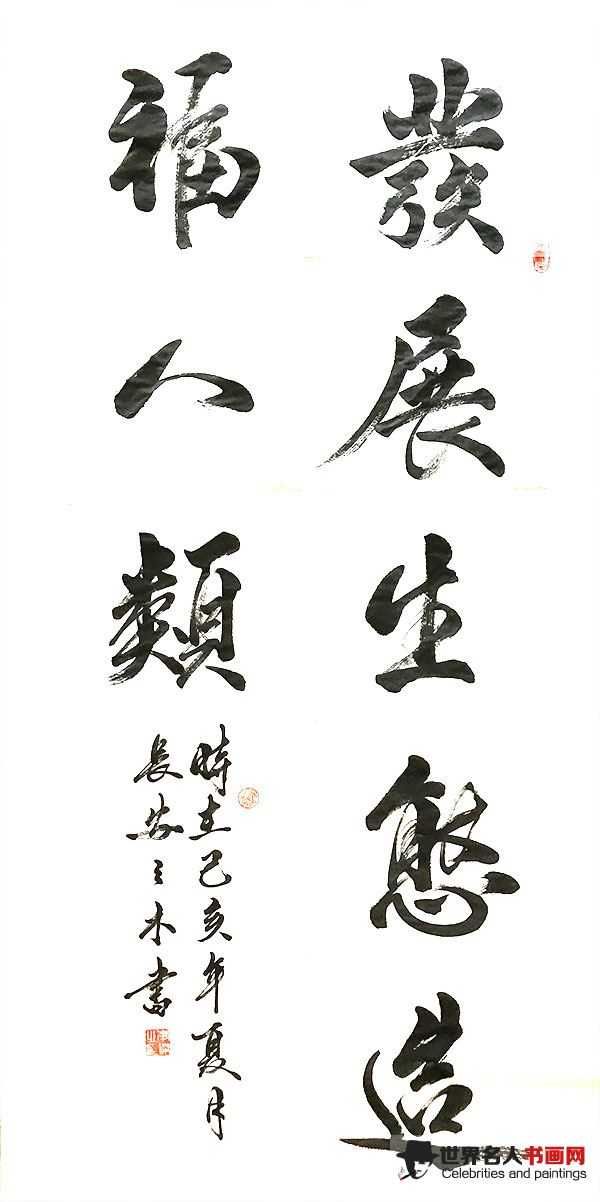 發展生態造
福人類
時在己亥年夏月
長安之木書
世界名人书画网
Celebrities and paintings